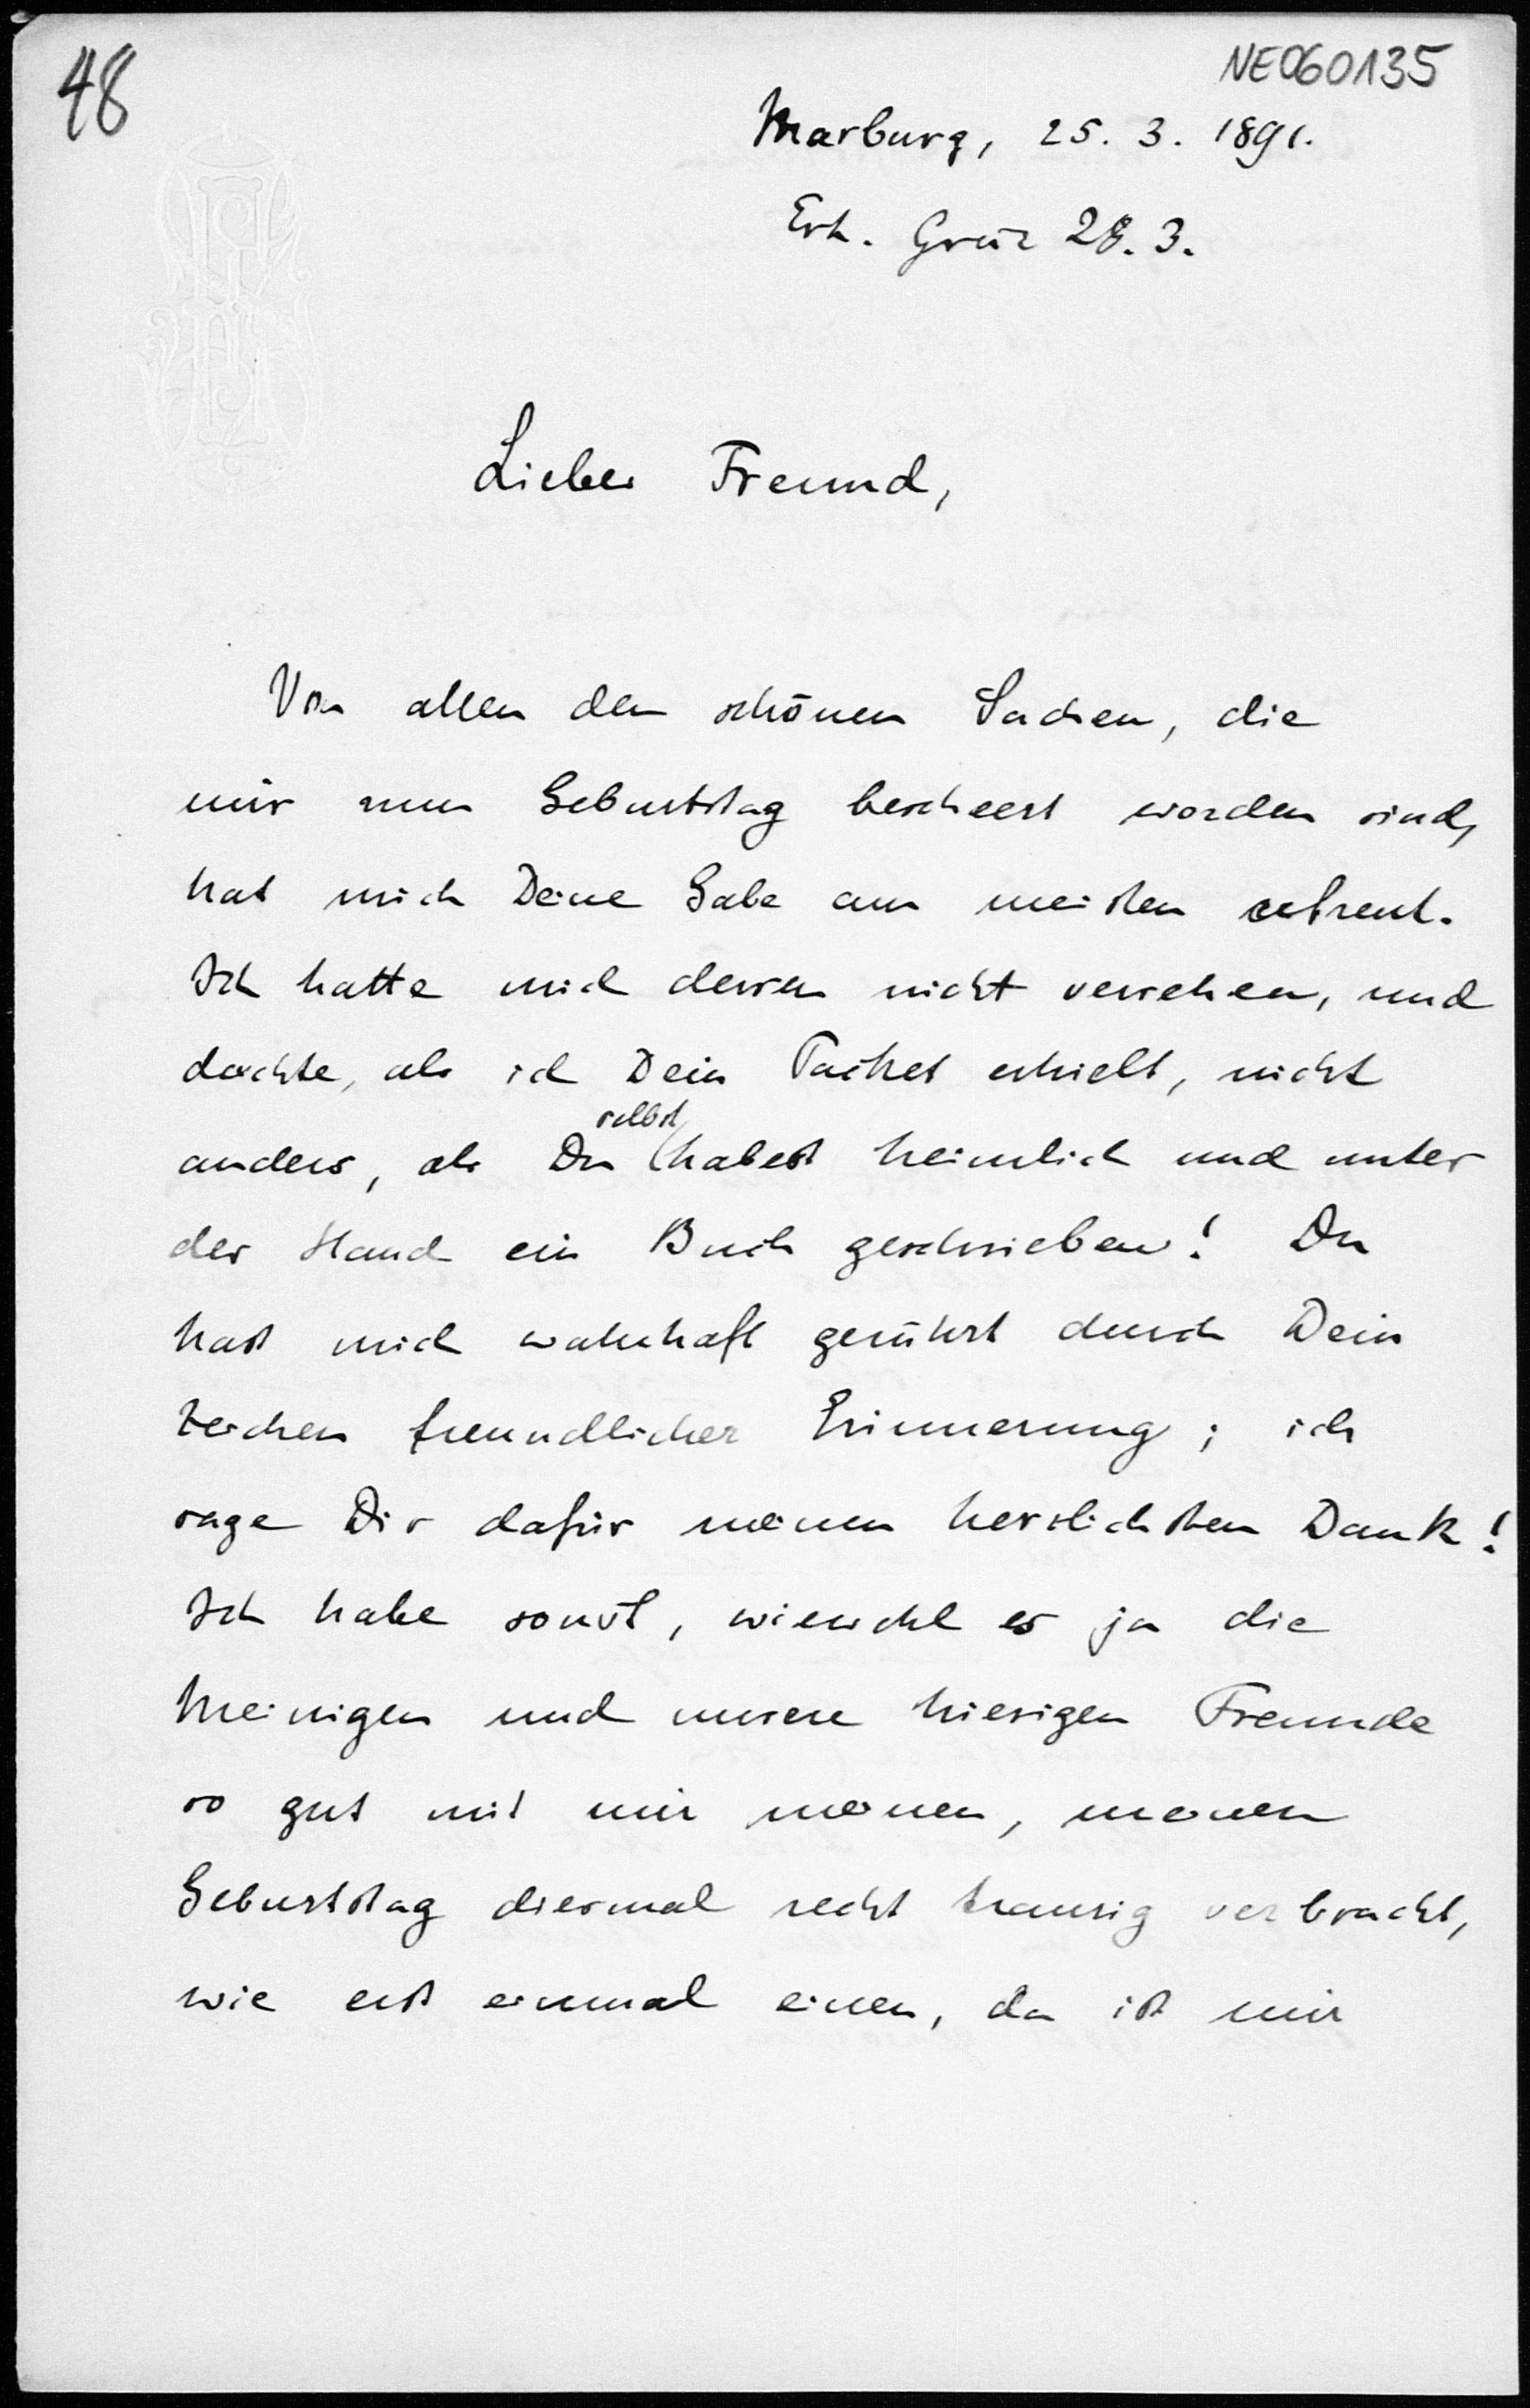 48
NE060135
Marburg, 25. 3. 1891.
Erh. Graz 28. 3.
Lieber Freund,
Von allen den schönen Sachen, die
mir zum Geburtstag bescheert worden sind,
hat mich Deine Gabe am meisten erfreut.
Ich hatte mich dessen nicht versehen, und
dachte, als ich Dein Packet erhielt, nicht
selbst
anders, als Du habest heimlich und unter
der Hand ein Buch geschrieben! Du
hast mich wahrhaft gerührt durch Dein
Zeichen freundlicher Erinnerung; ich
sage Dir dafür meinen herzlichsten Dank!
Ich habe sonst, wiewohl es ja die
Meinigen und unsere hiesigen Freunde
so gut mit mir meinen, meinen
Geburtstag diesmal recht traurig verbracht,
wie erst einmal einen, da ist mir